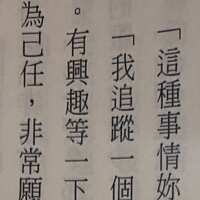 「這種事情妳
「我追蹤一個
。有興趣等一下
為己任，非常願